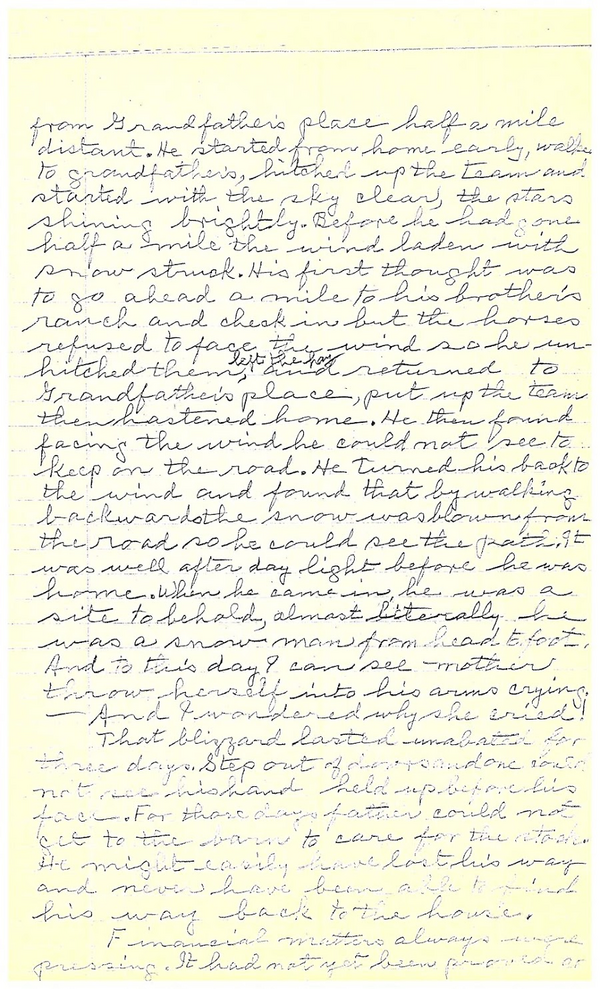 from Grandfather's place half a mile
distant. He started from home early, walked
to grandfather's, hitched up the team and
started with the sky clear, the stars
shining brightly. Before he had gone
half a mile the wind laden with
snow struck. His first thought was
to go ahead a mile to his brother's
ranch and check in but the horses
refused to face the wind so he un-
left the hay
hitched them, and returned to
Grandfather's place, put up the team
then hastened home. He then found
facing the wind he could not see to
keep on the road. He turned his back to
the wind and found that by walking
backwards the snow was blown from
the road so he could see the path. It
was well after day light before he was
home. When he came in, he was a
site to behold, almost literally he
was a snow man from head to foot.
And to this day I can see mother
throw herself into his arms crying.
— And I wondered why she cried!
That blizzard lasted unabated for
three days. Step out of doors and one could
not see his hand held up before his
face. For those days father could not
get to the barn to care for the stock.
He might easily have lost his way
and never have been able to find
his way back to the house.
Financial matters always were
pressing. It had not yet been proved as